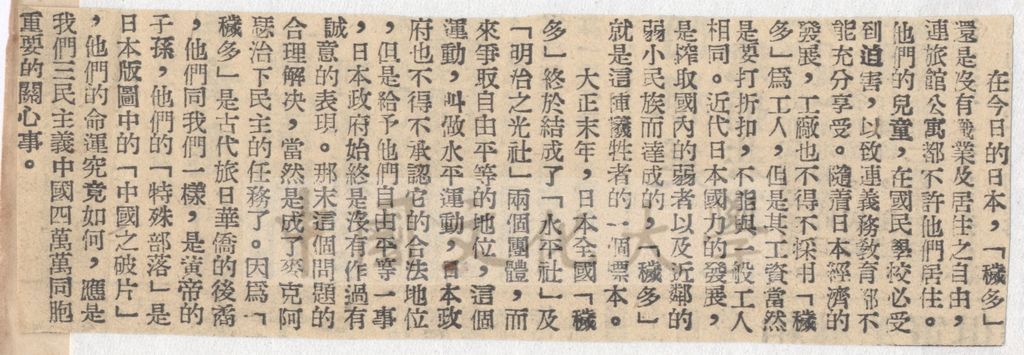 在今日的日本，「穢多」
還是沒有職業及居住之自由，
連旅館公寓都不許他們居住。
他們的兒童，在國民學校必受
到迫害，以致連義務教育都不
能充分享受。隨着日本經濟的
發展，工廠也不得不採用「穢
多」爲工人，但是其工資當然
是要打折扣，不能與一般工人
相同。近代日本國力的發展，
是搾取國內的弱者以及近鄰的
弱小民族而達成的，「穢多」
就是這種犧牲者的一個標本。
大正末年，日本全國「穢
多」終於結成了「水平社」及
「明治之光社」兩個團體，而
來爭取自由平等的地位，這個
運動，叫做水平運動，日本政
府也不得不承認它的合法地位
，但是給予他們自由平等一事
，日本政府始終是沒有作過有
誠意的表現。那末這個問題的
合理解決，當然是成了麥克阿
瑟治下民主的任務了。因爲「
穢多」是古代旅日華僑的後裔
，他們同我們一樣，是黃帝的
子孫，他們的「特殊部落」是
日本版圖中的「中國之破片」
，他們的命運究竟如何，應是
我們三民主義中國四萬萬同胞
重要的關心事。
中國文化大學